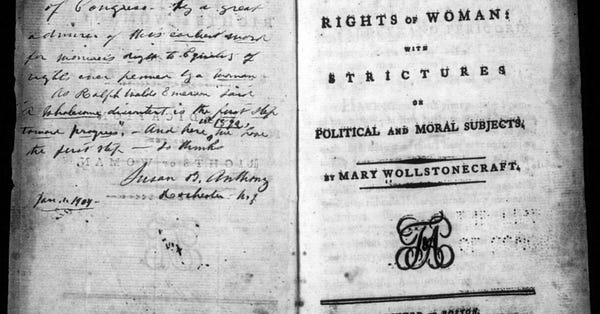 of Congress by a great
admirer of this earliest work
for woman's right to Equality of
right ever penned by a woman.
As Ralph Waldo Emerson said
"A wholesome discontent is the first step
toward progress" - And here in 1892 we have
the first step — So thinks
Susan B. Anthony
Jan. 1. 1904 Rochester N.Y.
RIGHTS OF WOMAN:
WITH
STRICTURES
ON
POLITICAL AND MORAL SUBJECTS.
BY MARY WOLLSTONECRAFT.
BOSTON,